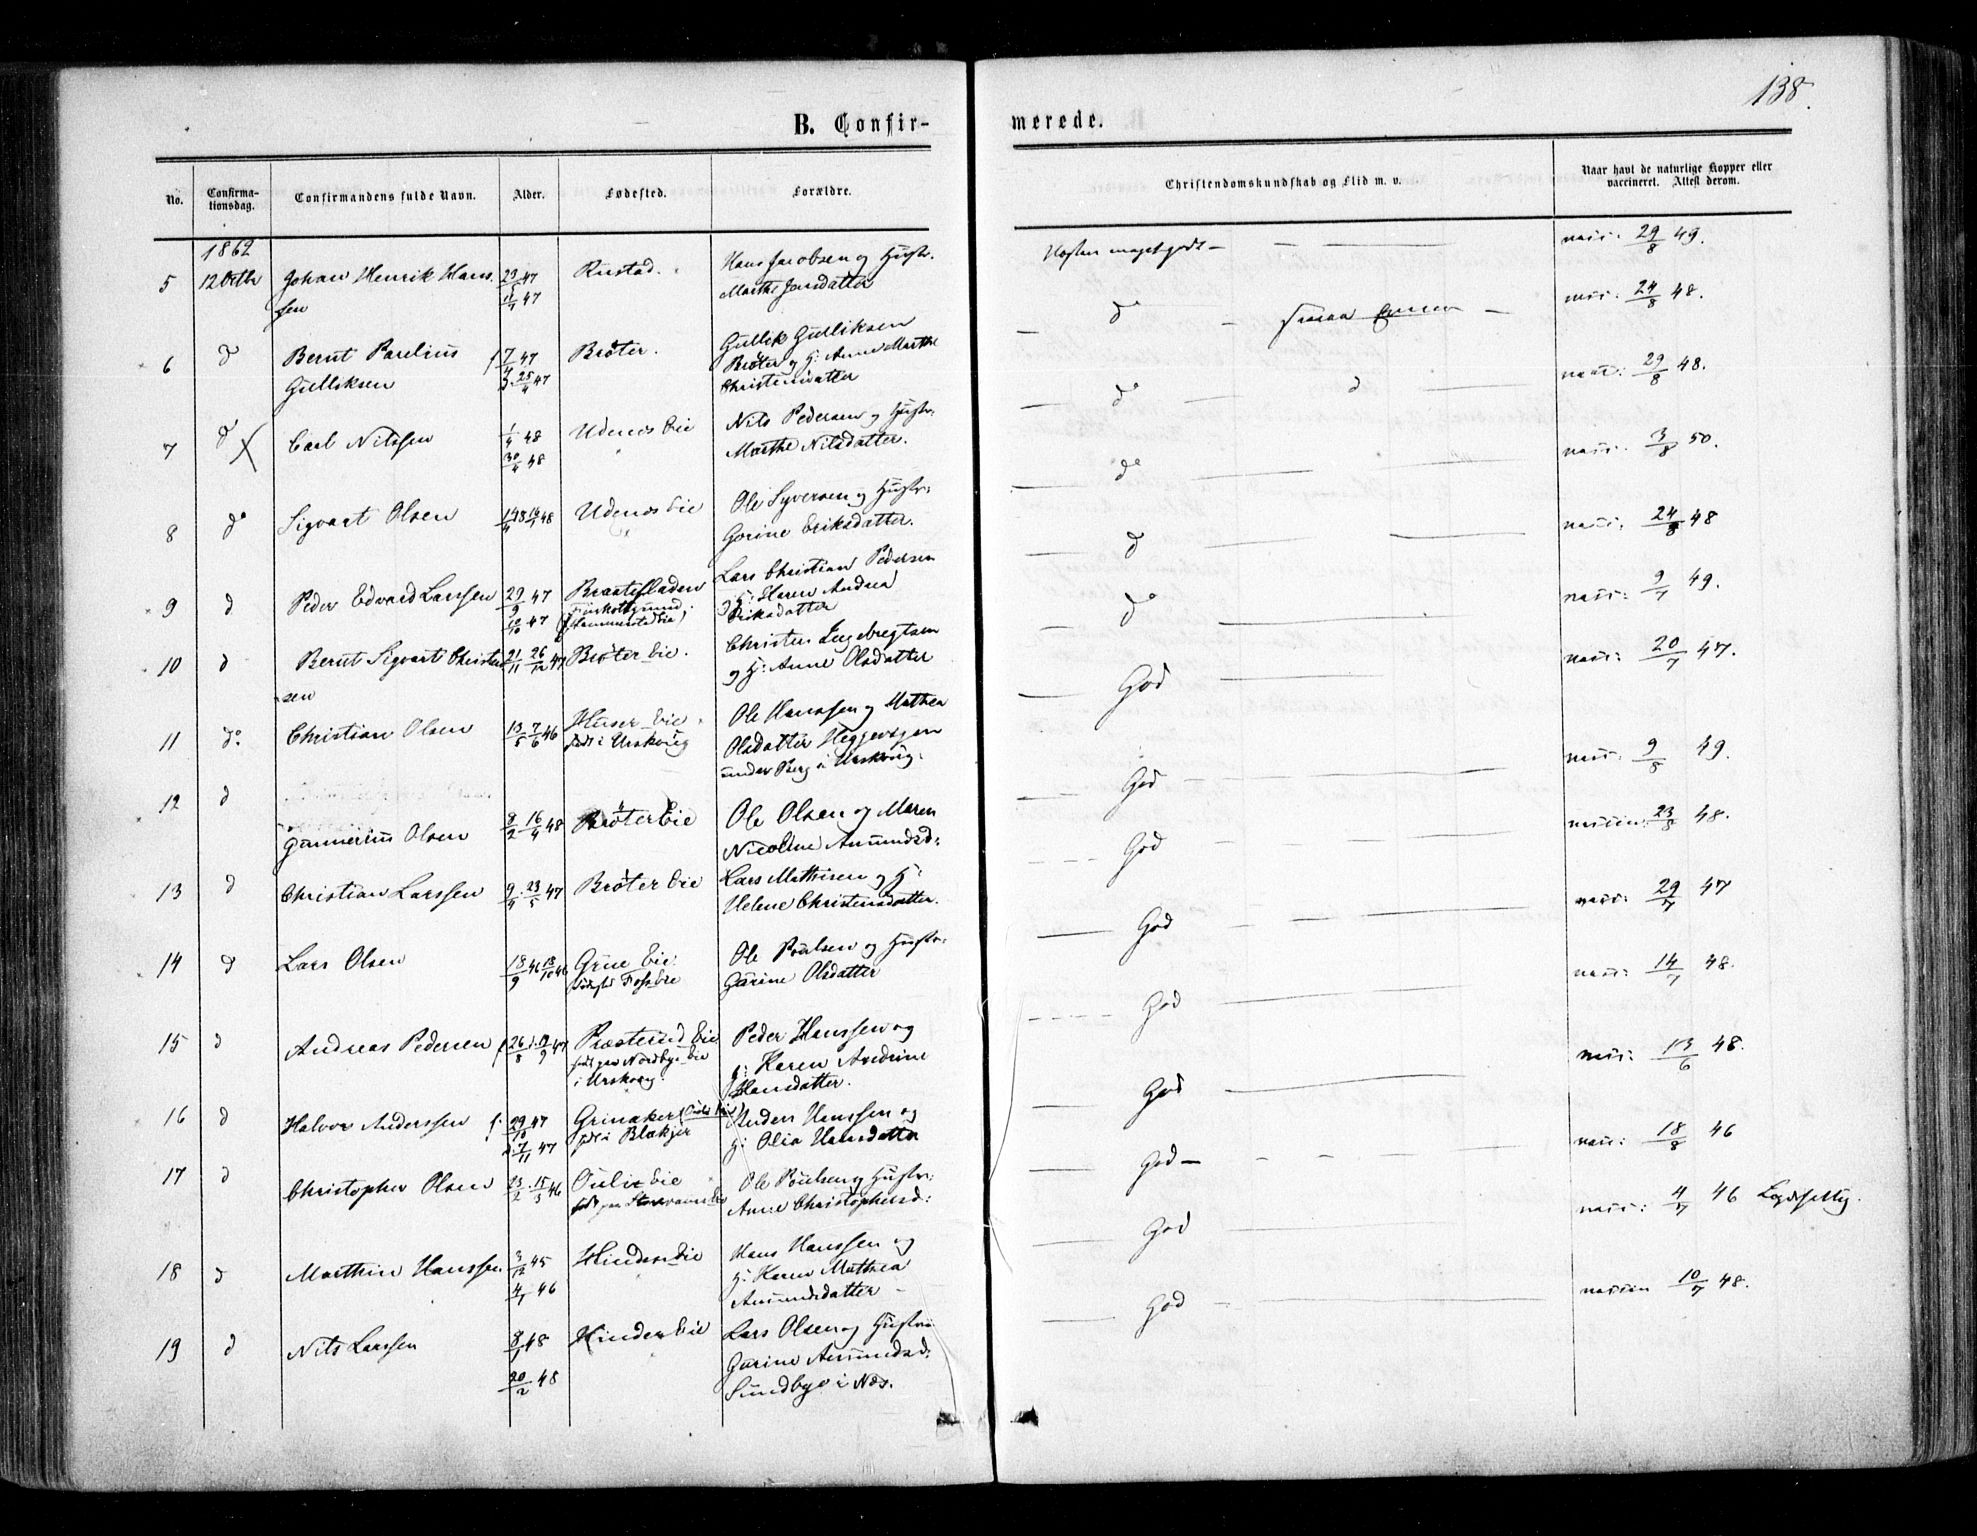 138.
B. Confir-
merede.
No.
Confirma-
tionsdag.
Confirmandens fulde Navn.
Alder.
Fødested.
Forældre.
Christendomskundskab og Flid m. v.
Naar havt de naturlige Kopper eller
vaccineret. Attest derom.
1862
5 12 Octbr Johan Henrik Hans- 23/5 47 Rustad. Hans Jacobsen og Hustr: Næsten meget godt - vacc: 29/8 49.
sen 47 Marthe Jansdatter
6 d Bernt Parelius f 7/4 47 Brøter. Gullik Gulliksen d vacc: 24/8 48.
Gulliksen 25/4 47 Brøter og H: Anne Marthe
Christensdatter
7 d Carl Nilssen 1/4 48 Udenes Eie Nils Pedersen og Hustr: d° d vacc: 29/8 48.
30/4 48 Marthe Nilsdatter.
8 d° Sigvart Olsen 48 Udenes Eie Ole Syversen og Hustr: d° vacc: 3/8 50.
Gorine Eriksdatter.
9 d Peder Edvard Larssen 29/9 47 Braatefladen Lars Christian Pedersen d vacc: 24/8 48
10/10 47 og H: Karen Andrea
Eriksdatter
10 d Bernt Sigvart Christen 21/11 26/12 47 Brøter Eie. Christen Engebregtsen d° vacc: 9/7 49.
sen og H: Anne Olsdatter
11 d° Christian Olsen 13/5 7/6 46 Huser Eie Ole Hanssen og Mathea God vacc: 20/7 47.
født i Urskoug Olsdatter Heggevegen
under Berg i Urskoug.
12 d Gunnerius Olsen 8/2 16/4 48 Brøter Eie Ole Olsen og Maren God vacc: 9/8 49.
Nicoline Amundsd:
13 d Christian Larssen 9/4 23/5 47 Brøter Eie Lars Mathisen og H: God vaccin: 23/8 48.
Helene Christensdatter.
14 d Lars Olsen 18/9 46 18/10 46 Grue Eie. Ole Poulsen og Hustr: God vacc: 29/7 47
Fødested Foss Eie Garine Olsdatter
15 d Andreas Pedersen f 26/8 47 Præsterud Eie Peder Hanssen og God vacc: 14/7 48.
født paa Nordbye Eie H: Karen Andrine
i Urskoug. Hansdatter.
16 d Halvor Anderssen f. 29/10 47 Grinaker Anders Hanssen og God vacc: 13/6 48.
d. 7/11 47 født i Blakjer H: Olia Hansdatter
17 d Christopher Olsen 23/2 15/3 46 Ouli Eie Ole Poulsen og Hustr: God - vacc: 18/8 46
Anne Christophersd:
18 d Marthin Hanssen 3/12 45 Hinden Eie Hans Hanssen og God vacc: 4/7 46
4/1 46 H: Karen Mathea
Amundsdatter -
19 d Nils Larssen 8/1 48 Hinden Eie Lars Olsen og Hustru God vaccin 10/7 48.
20/2 48 Garine Amundsd:
Sundbye i Næs.